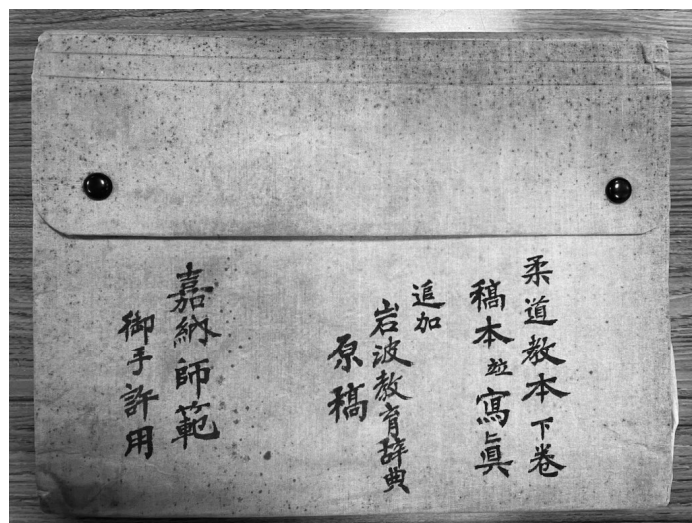 柔道教本下巻
稿本並寫眞
追加
岩波教育辞典
原稿
嘉納師範
御手許用